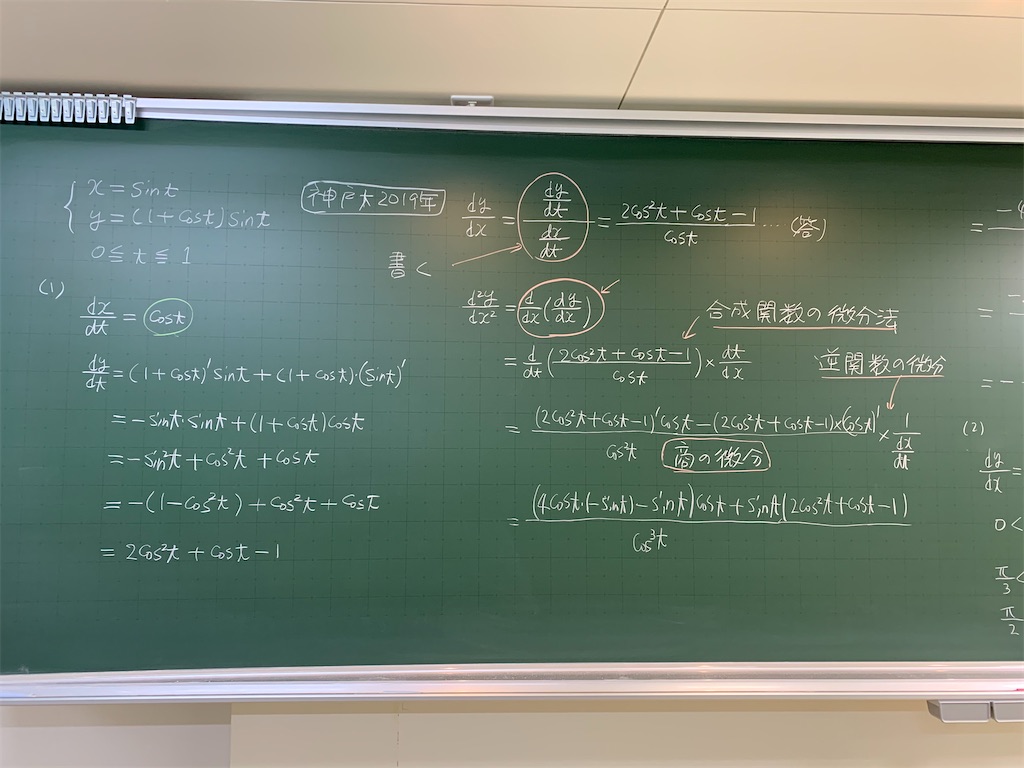 x = sint
y = (1+cost)sint
0 ≦ t ≦ 1
神戸大2019年
(1)
dx/dt = cost
dy/dt = (1+cost)'sint + (1+cost)·(sint)'
= -sint·sint + (1+cost)cost
= -sin²t + cos²t + cost
= -(1-cos²t) + cos²t + cost
= 2cos²t + cost - 1
dy/dx = (dy/dt)/(dx/dt) = (2cos²t + cost - 1)/cost … (答)
書く
d²y/dx² = d/dx(dy/dx)
合成関数の微分法
= d/dt((2cos²t + cost - 1)/cost) × dt/dx
逆関数の微分
= ((2cos²t+cost-1)'cost - (2cos²t+cost-1)×(cost)')/cos²t × 1/(dx/dt)
商の微分
= ((4cost·(-sint) - sint)cost + sint(2cos²t+cost-1))/cos³t
=
=
= -
(2)
dy/dx =
0 <
π/3 <
π/2